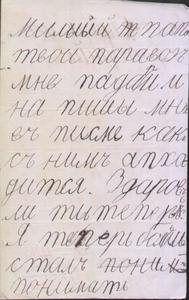 милый т папа
твой паравозъ
мне падай и
на пишы мне
еч писме как
съ нимъ апхо
дится. Здаров
ли ти теперъ
Я теперь больш
сталъ
понимать